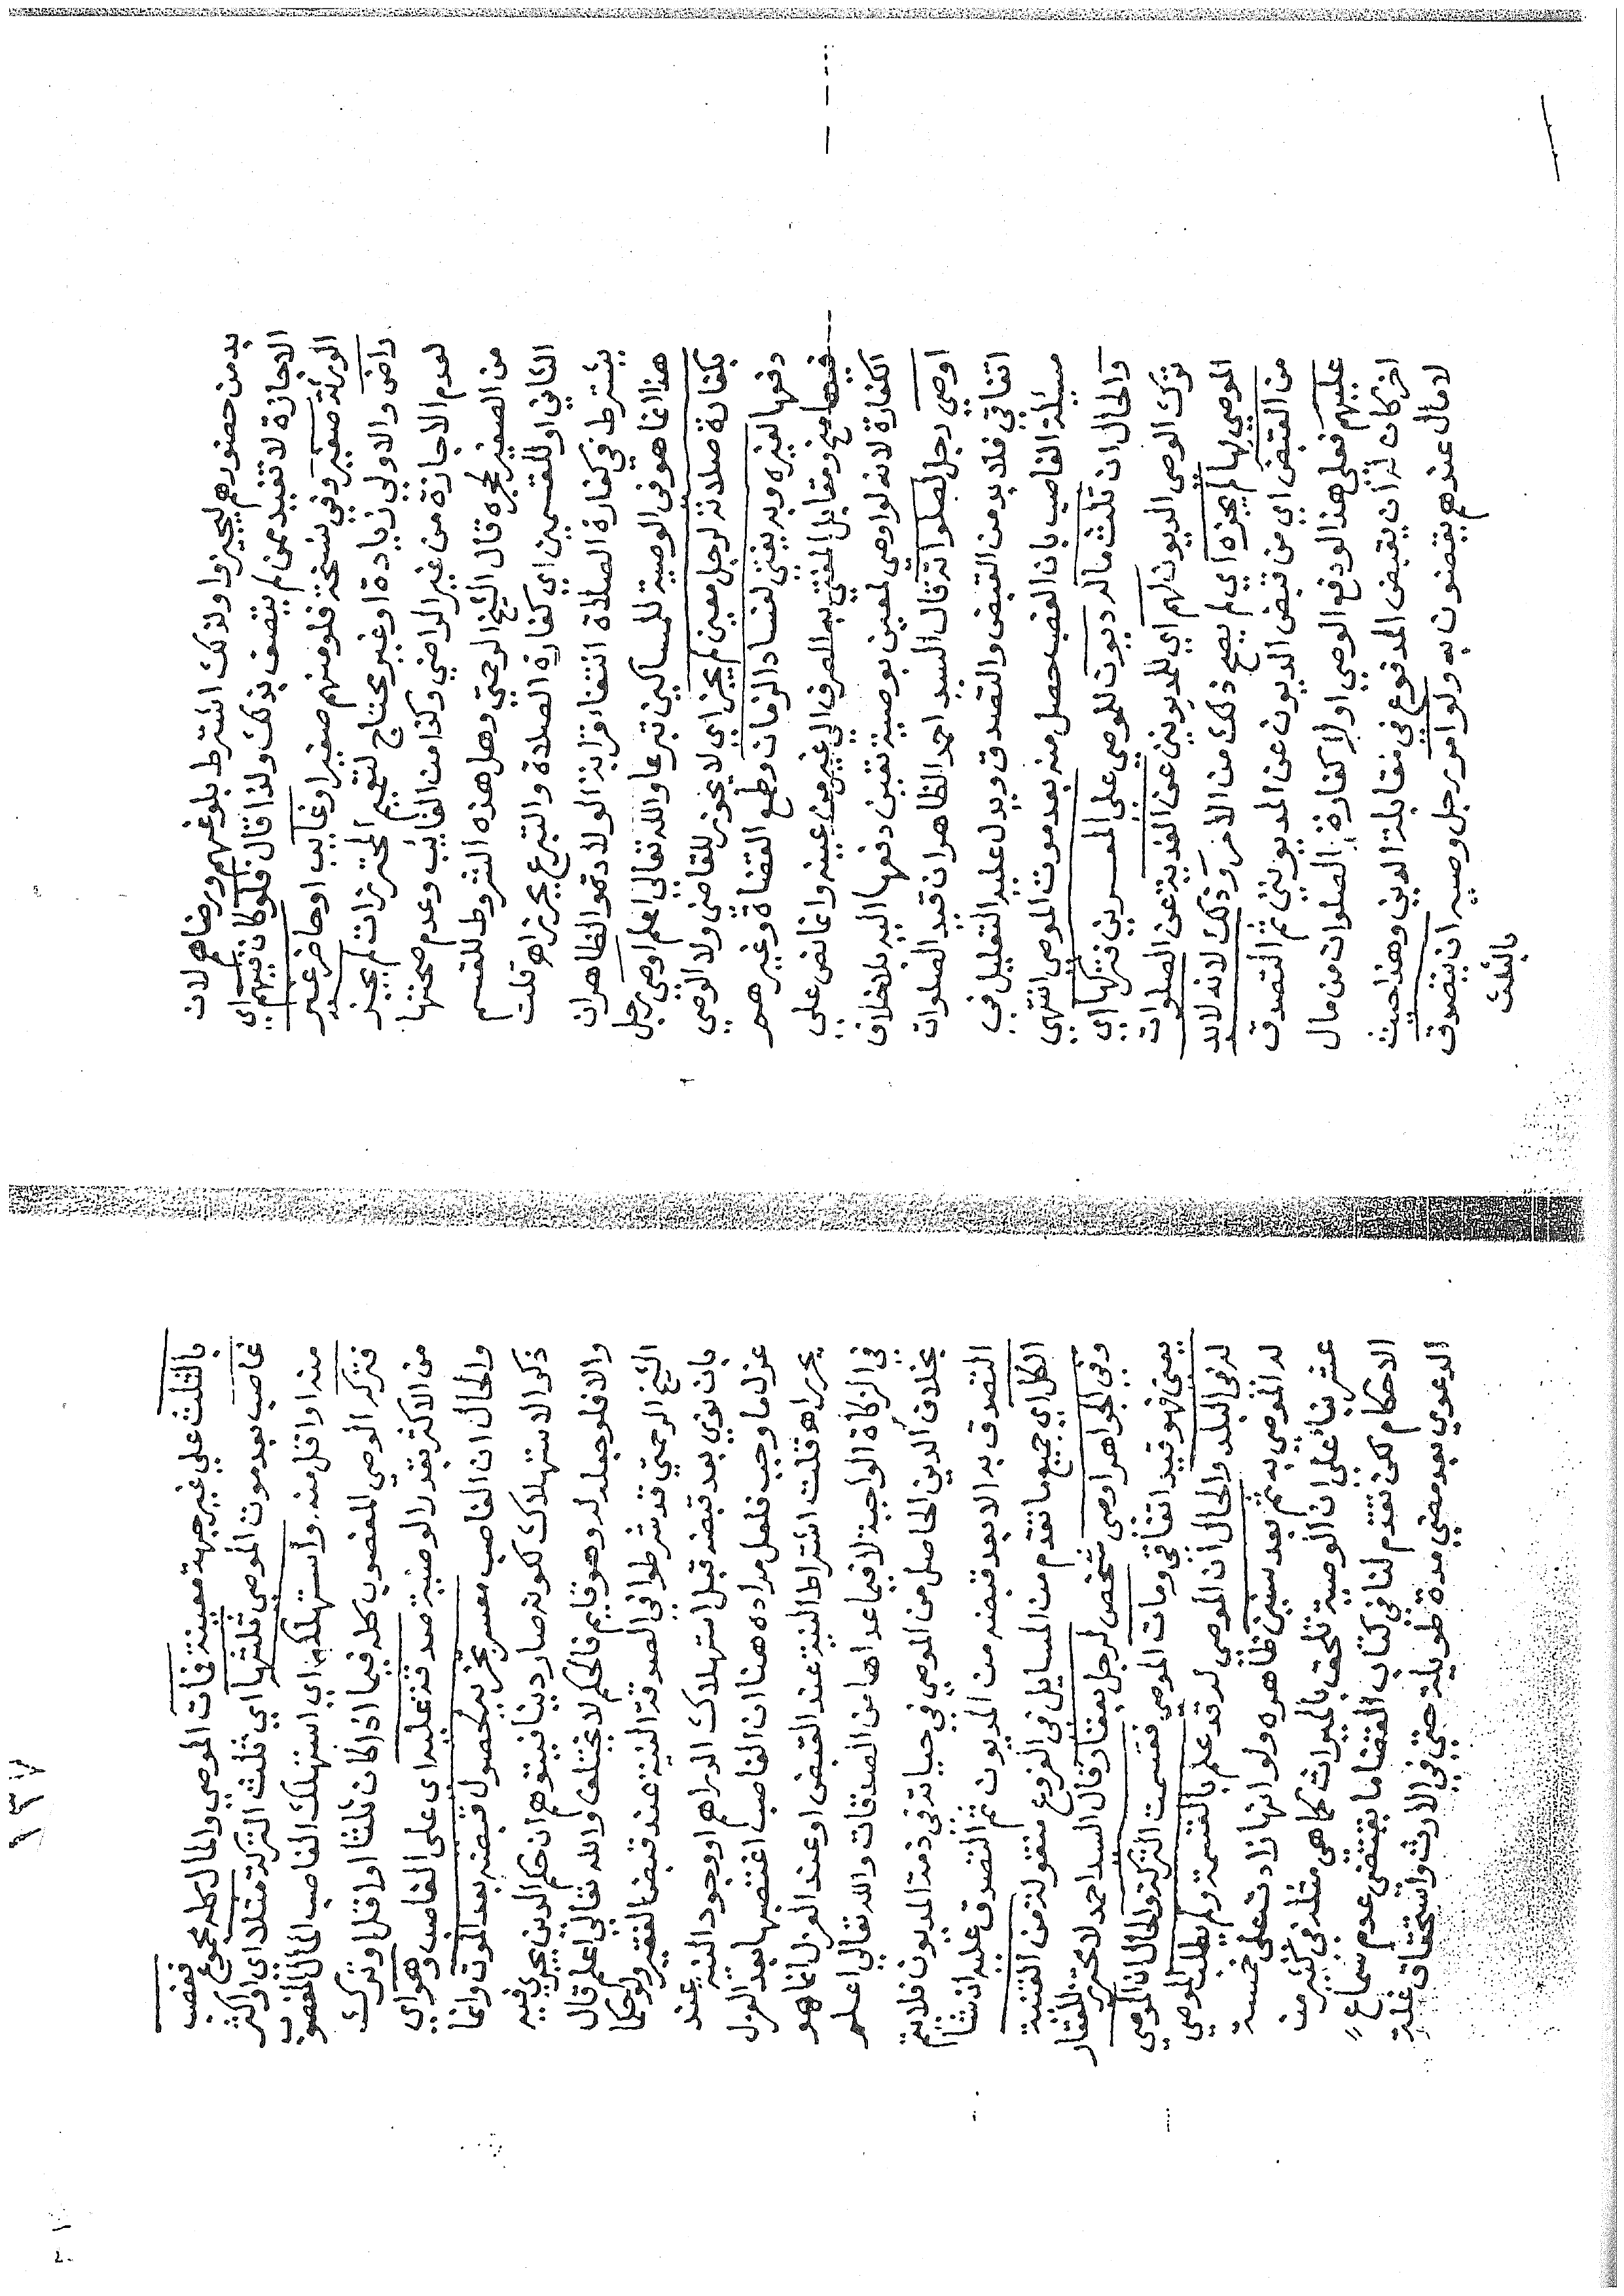 بد من حضورهم ليجيزوا ولذلك اشترط بلوغهم ورضاهم لان
الاجازة لا تفيد ممن لم يتصف بذلك ولذا قال فلو كان فيهم اي
الورثة صغير وفي نسخة فلو منهم صغير او غايب او حاضر غير
راض والاولى زيادة او غير محتاج لتعميم المحترزات لم يجز
لعدم الاجازة من غير الراضي وكذا من الغايب وعدم صحتها
من الصغير لحجره قال الشيخ الرحمتي وهل هذه الشروط للقسم
الثاني او للقسمين اي كفارة الصلاة والتبرع يحرر اهـ قلت
يشترط في كفارة الصلاة انتفاء قرابة الولاد ثم الظاهر ان
هذا انما هو في الوصية للمساكين تبرعا والله تعالى اعلم اوصى رجل
بكفارة صلاته لرجل معين لم يجز اي لا يجوز للقاضي ولا الوصي
دفعها لغيره وبه يفتى لفساد الزمان وطمع القضاة وغيرهم
فيها منح ومقابل المفتى به الصرف الى غير من عينه وانما نص على
الكفارة لانه لو اوصى لمعين بوصية تعين دفعها اليه بلا خلاف
اوصى رجل لصلواته قال السيد احمد الظاهر ان قيد الصلوات
اتفاقي فلا بد من القبض والتصدق ويدل عليه التعليل في
مسئلة الغاصب بان الغصب حصل منه بعد موت الموصي انتهى
والحال ان ثلث ماله ديون للموصي على المعسرين فتركها اي
ترك الوصي الديون لهم اي للمديونين عن الفدية عن الصلوات
الموصى لها لم يجزه اي لم يصح ذلك من الامر وذلك لانه لا بد
من القبض اي من قبض الديون عن المديونين ثم التصدق
عليهم فعلى هذا لو دفع الوصي اولا كفارة الصلوات من مال
اخر كان له ان يقبض المدفوع في مقابلة الدين وهذا حيث
لا مال عندهم يقضون به ولو امر رجل وصيه ان يتصدق
بالثلث
١٣٧
بالثلث على غير جهة معينة فمات الموصي والمال كله مجموع فغصب
غاصب بعد موت الموصي ثلثها اي ثلث التركة مثلا اي او اكثر
منه او اقل منه واستهلكه اي استهلك الغاصب المال المغصوب
فتركه الوصي المغصوب كله فيما اذا كان ثلثا او اقل او ترك
من الاكثر بقدر الوصية صدقة عليه اي على الغاصب وهو اي
والحال ان الغاصب معسر يجزيه لحصول قبضه بعد الموت وانما
ذكر الاستهلاك لكونه صار دينا فيتوهم ان حكم الدين يجري فيه
والا فلو جعله له وهو قايم فالحكم لا يختلف والله تعالى اعلم قال
الشيخ الرحمتي قد شرطوا في الصدقة النية عند قبض الفقير ولو حكما
بان نوى بعد قبضه قبل استهلاك الدراهم او وجود النية عند
عزل ما وجب فلعل مراده هنا ان الغاصب اغتصبها بعد العزل
يحرر اهـ قلت اشتراط النية عند القبض او عند العزل انما هو
في الزكاة الواجبة لا فيما عداها من الصدقات والله تعالى اعلم
بخلاف الدين الحاصل من الموصي في حياته في ذمة المديون فلا يتم
التصدق به الا بعد قبضه من المديون ثم التصدق عليه ان شاء
الكل اي جميع ما تقدم من المسايل في الفروع منقولة من القنية
وفي الجواهر اوصى شخص لرجل بعقار قال السيد احمد لا يحترز للعقار
بمعنى فهو قيد اتفاقي ومات الموصي فقسمت التركة والحال ان الموصي
له في البلد والحال ان الموصى له قد علم بالقسمة ولم يطلب الموصي
له الموصى به ثم بعد سنين ظاهره ولو انها زادت على خمسة
عشر بناء على ان الوصية تلحق بالميراث كما هي مثله في كثير من
الاحكام لكن تقدم لنا في كتاب القضا ما يقتضي عدم سماع
الدعوى بعد مضي مدة طويلة حتى في الارث واستحقاق غلة